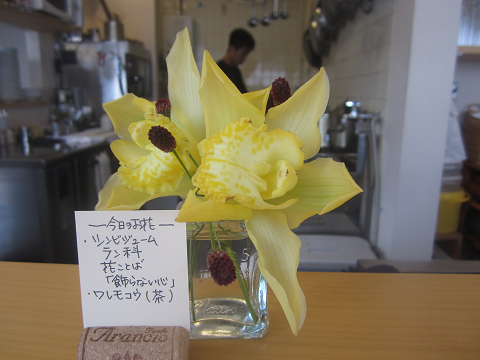 ―今日のお花―
・シンビジューム
ラン科
花ことば
「飾らない心」
・ワレモコウ(茶)
Arancio